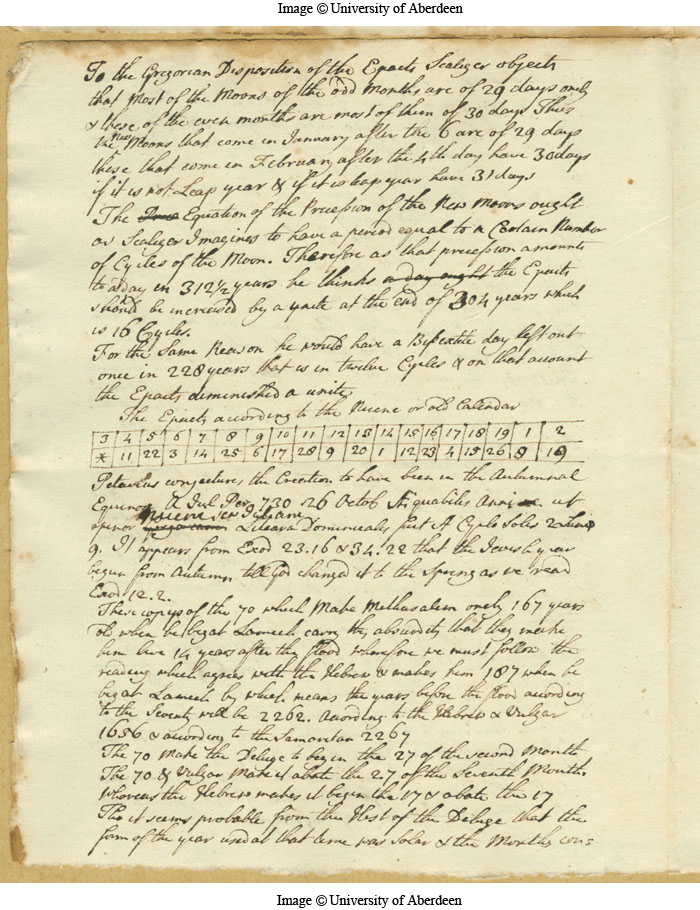 Image © University of Aberdeen
To the Gregorian Disposition of the Epacts Scaliger objects
that Most of the Moons of the odd Months are of 29 days only
& these of the even months are most of them of 30 days Thus
the new Moons that come in January after the 6 are of 29 days
these that come in February after the 4th day have 30 days
if it is not Leap year & if it is leap year have 31 days
The Equation of the Precession of the New Moons ought
as Scaliger Imagines to have a period equal to a Certain Number
of Cycles of the Moon. Therefore as that precession amounts
to a day in 312½ years he thinks no day ought the Epacts
should be increased by a unite at the end of 304 years which
is 16 Cycles.
For the Same Reason he would have a Bisextile day left out
once in 228 years that is in twelve Cycles & on that account
the Epacts diminished a unite
The Epacts according to the Nicene or old Calendar
3 4 5 6 7 8 9 10 11 12 13 14 15 16 17 18 19 1 2
* 11 22 3 14 25 6 17 28 9 20 1 12 23 4 15 26 8 19
Petavius conjectures the Creation to have been in the Autumnal
Equinox A Jul Per 730 26 Octob ut
opinor Litera Dominicalis fuit A Cyclo Solis 2 Lunæ
9. It appears from Exod 23.16 & 34.22 that the Jewish year
begun from Autumn till God changed it to the Spring as we read
Exod 12.2.
These copys of the 70 which Make Methusalem onely 167 years
old when he begat Lamech carry this absurdity that they make
him live 14 years after the flood wherefore we must follow the
reading which agrees with the Hebrew & makes him 187 when he
begat Lamech by which means the years before the flood according
to the Seventy will be 2262. Acording to the Hebrew & Vulgar
1656 & acording to the Samaritan 2267
The 70 Make the Deluge to begin the 27 of the second Month
The 70 & Vulgar Make it abate the 27 of the Seventh Month.
Whereas the Hebrew makes it begin the 17 & abate the 17
Tho it seems probable from the Hist of the Deluge that the
form of the year used at that time was Solar & the Months con=
Image © University of Aberdeen